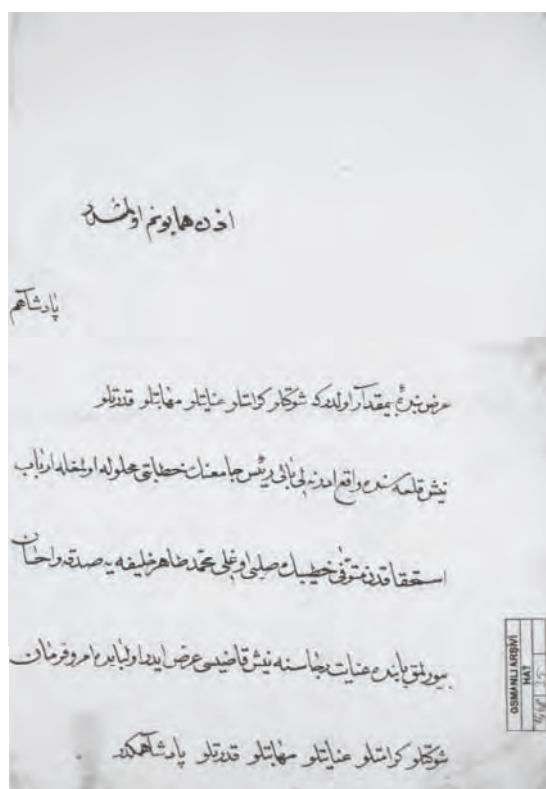 اذن همايونم اولمشدر
پادشاهم
عرض بندهٔ بيمقدار اولدركه شوكتلو كرامتلو عنايتلو مهابتلو قدرتلو
نيش قلعه‌سنده واقع جامعنك خطابتى محلوله اولمغله ارباب
استحقاقدن متوفى خطيبك صلبى اوغلى محمد طاهر خليفه‌يه صدقه واحسان
بيورلمق بابنده عنايت رجاسنه نيش قاضيسى عرض ايدر اولبابده امر وفرمان
شوكتلو كرامتلو عنايتلو مهابتلو قدرتلو پادشاهمكدر
OSMANLI ARŞİVİ
HAT